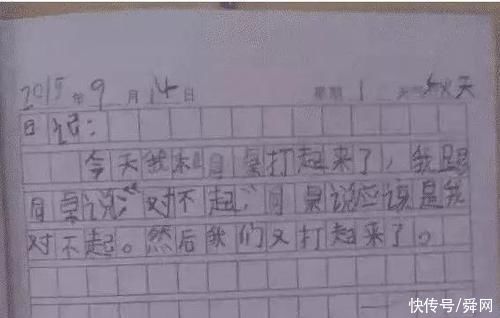 2015年9月14日 星期1 天气秋天
日记：
今天我和同桌打起来了，我跟
同桌说：“对不起”，同桌说应该是我
对不起。然后我们又打起来了。
快传号/舜网